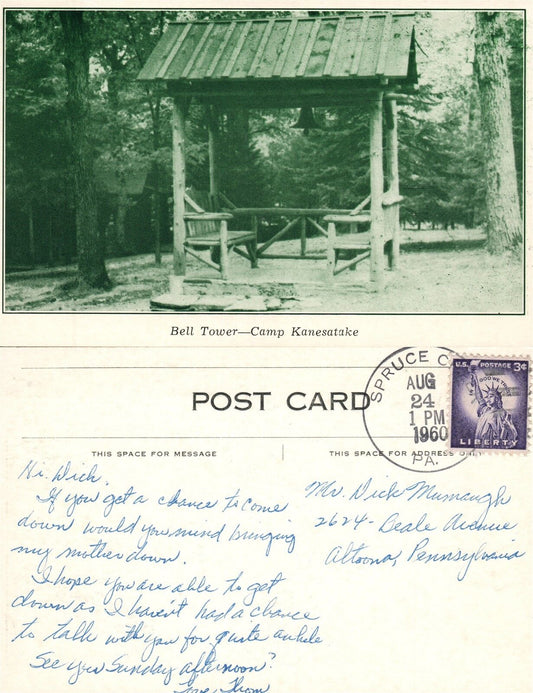 Bell Tower—Camp Kanesatake
SPRUCE C
AUG
24
1 PM
1960
PA.
U.S. POSTAGE 3¢
IN GOD WE TRUST
LIBERTY
POST CARD
THIS SPACE FOR MESSAGE
THIS SPACE FOR ADDRESS ONLY
Hi Dick,
If you get a chance to come
down would you mind bringing
my mother down.
I hope you are able to get
down as I haven't had a chance
to talk with you for quite awhile
See you Sunday afternoon?
Love, Thom
Mr. Dick Mumaugh
2624- Beale Avenue
Altoona, Pennsylvania